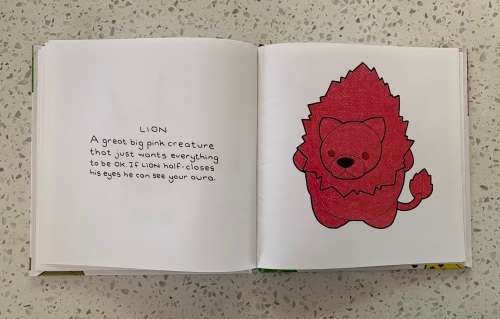 LION
A great big pink creature
that just wants everything
to be OK. If LION half-closes
his eyes he can see your aura.